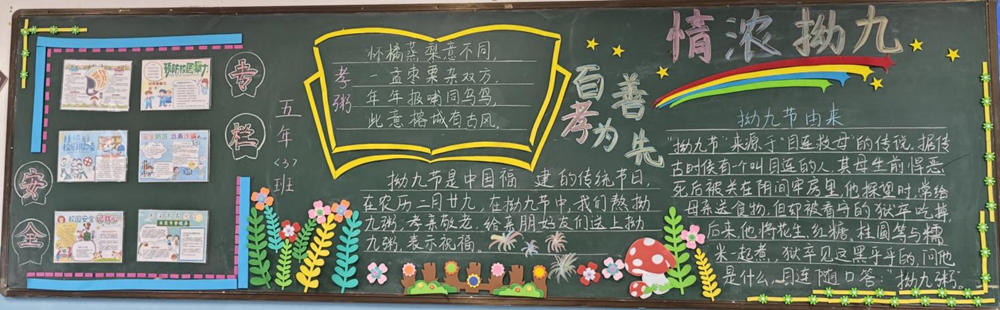 安全
专栏
五年<3>班
孝粥
怀橘蒸梨意不同，
一盂枣栗杂双方，
年年报哺同乌鸟，
此意榕城有古风，
百善
孝为先
拗九节是中国福 建的传统节日，
在农历二月廿九，在拗九节中，我们熬拗
九粥，孝亲敬老，给亲朋好友们送上拗
九粥，表示祝福。
情浓拗九
拗九节由来
"拗九节"来源于"目连救母"的传说，据传
古时候有个叫目连的人，其母生前悍恶
死后被关在阴间牢房里，他探望时，常给
母亲送食物，但却被看守的狱卒吃掉
后来他将花生、红糖、桂圆等与糯
米一起煮，狱卒见这黑乎乎的，问他
是什么，目连随口答："拗九粥"。